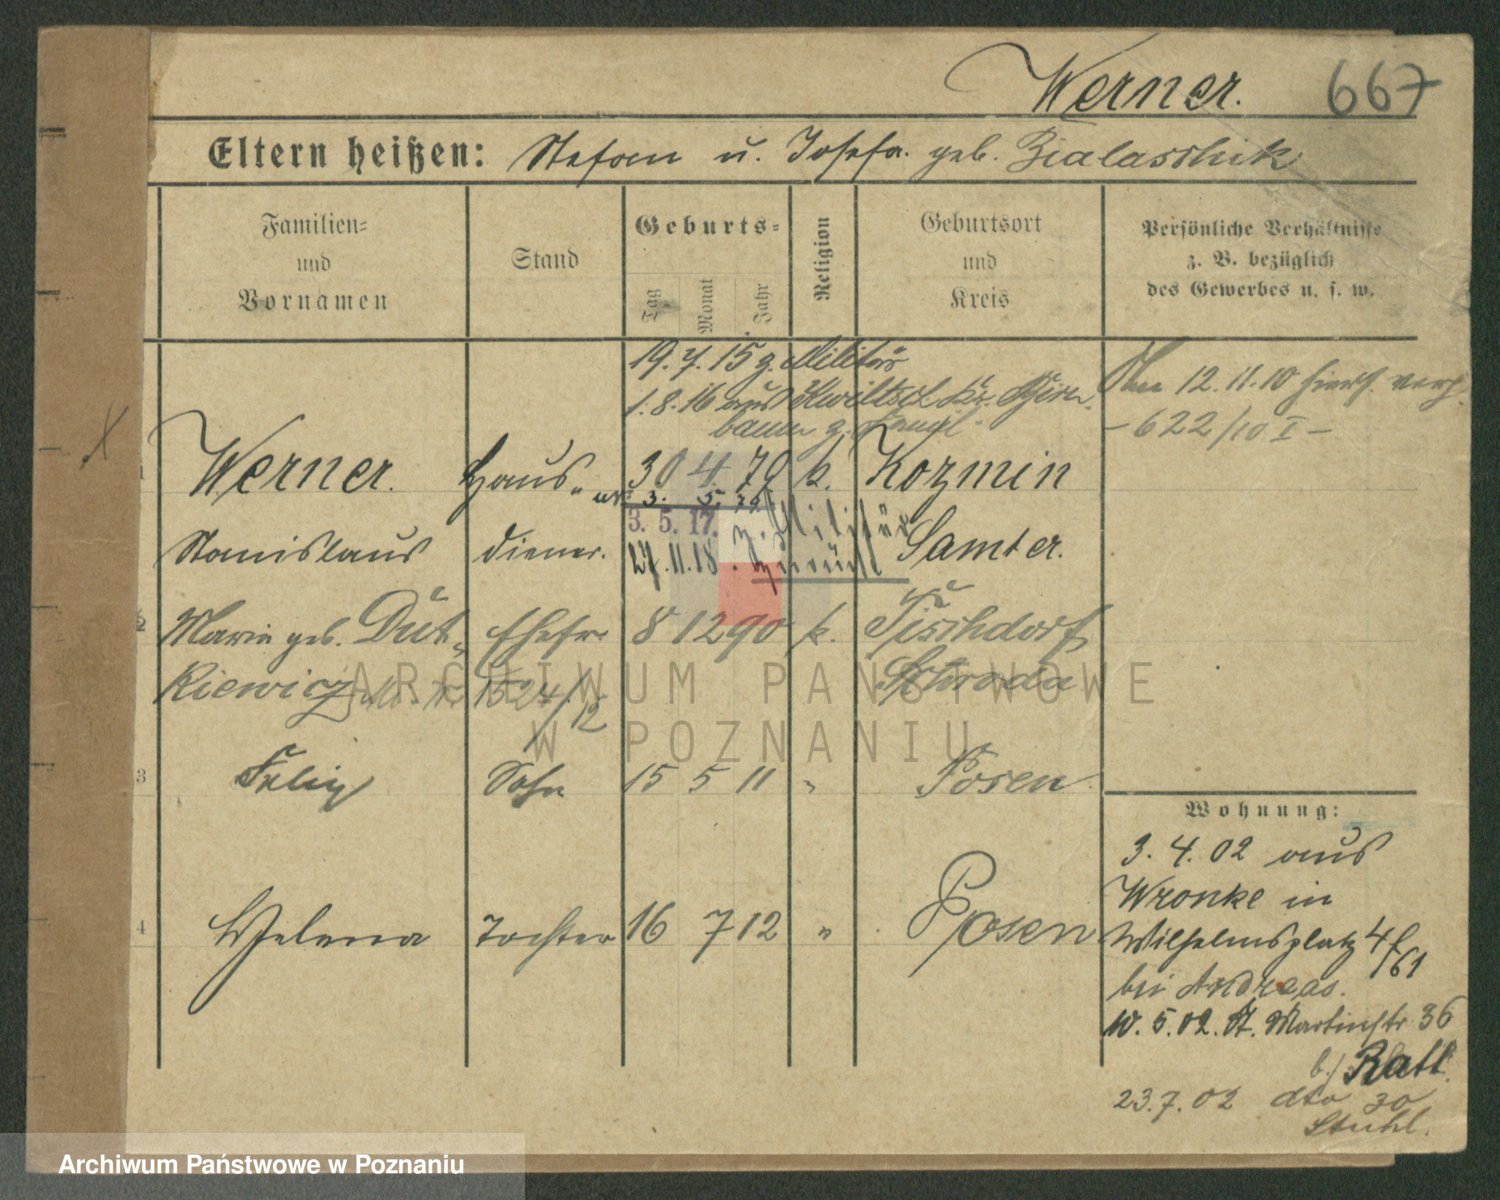 Werner. 667
Eltern heißen: Stefan u. Josefa geb. Bialasschik
Familien=
und
Vornamen
Stand
Geburts=
Tag
Monat
Jahr
Religion
Geburtsort
und
Kreis
Persönliche Verhältnisse
z. B. bezüglich
des Gewerbes u. s. w.
19. 7. 15 z. Militär
1. 8. 16 aus Kwiltsch Kr. Birn-
baum z.
12. 11. 10
- 622/10 I -
1 Werner. Haus- 30 4. 79 k. Kozmin
3. 5. 79
Stanislaus diener. 3. 5. 17. z. Militär Samter.
27. 11. 18. zurück
2 Marie geb. Dut- Ehefr. 8 12 90 k. Tischdorf
kiewicz 1524/12 Schroda
3 Felix Sohn 15 5 11 " Posen
4 Helena Tochter 16 7 12 " Posen
Wohnung:
3. 4. 02 aus
Wronke in
Wilhelmsplatz 4
bei Andreas.
10. 5. 02. St. Martinstr. 36
b/ Ratt
23. 7. 02 dto 30
Stuhl.
ARCHIWUM PAŃSTWOWE
W POZNANIU
Archiwum Państwowe w Poznaniu